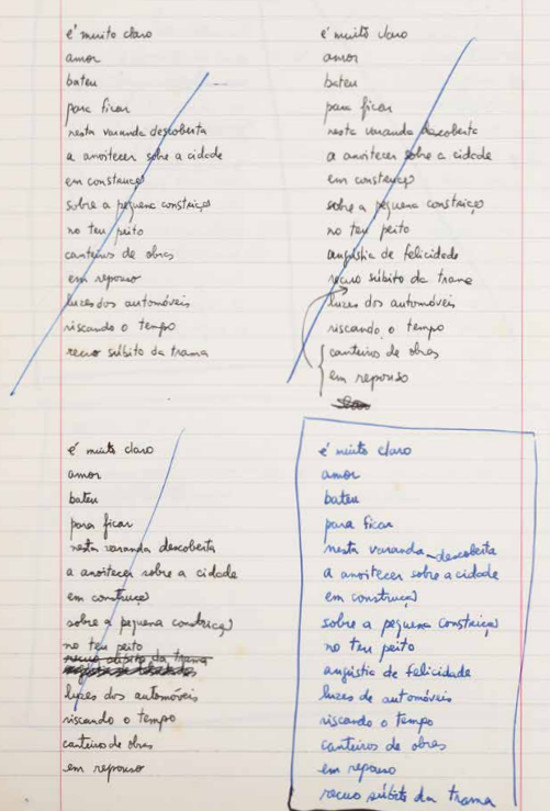 é muito claro
amor
bateu
para ficar
nesta varanda descoberta
a anoitecer sobre a cidade
em construção
sobre a pequena constrição
no teu peito
canteiros de obras
em repouso
luzes dos automóveis
riscando o tempo
recuo súbito da trama
é muito claro
amor
bateu
para ficar
nesta varanda descoberta
a anoitecer sobre a cidade
em construção
sobre a pequena constrição
no teu peito
angústia de felicidade
recuo súbito da trama
luzes dos automóveis
riscando o tempo
canteiros de obras
em repouso
é muito claro
amor
bateu
para ficar
nesta varanda descoberta
a anoitecer sobre a cidade
em construção
sobre a pequena constrição
no teu peito
recuo súbito da trama
luzes dos automóveis
riscando o tempo
canteiros de obras
em repouso
é muito claro
amor
bateu
para ficar
nesta varanda descoberta
a anoitecer sobre a cidade
em construção
sobre a pequena constrição
no teu peito
angústia de felicidade
luzes de automóveis
riscando o tempo
canteiros de obras
em repouso
recuo súbito da trama